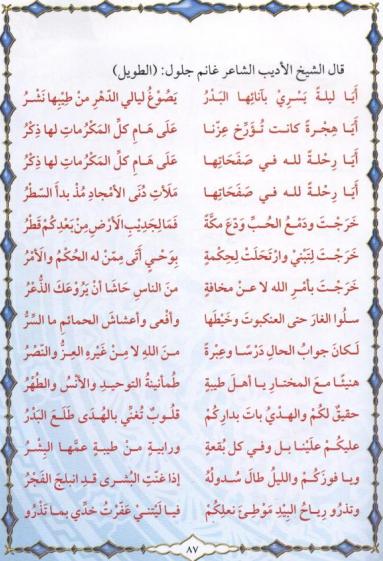 قال الشيخ الأديب الشاعر غانم جلول: (الطويل)
أَيَا ليلةً يَسرِيْ بآنائِها البَدْرُ يَصُوْغُ ليالي الدَّهْرِ منْ طيْبِها نَشْرُ
أَيَا هِجْرةً كانت تُؤَرِّخُ عِزَّنا عَلَى هَامِ كلِّ المَكرُماتِ لها ذِكْرُ
أَيَا رِحْلَةً لله في صَفَحَاتِها عَلَى هَامِ كلِّ المَكرُماتِ لها ذِكْرُ
أَيَا رِحْلَةً لله في صَفَحَاتِها مَلَأتِ دُنَى الأمْجادِ مُذْ بدأَ السَطْرُ
خَرَجْتَ ودَمْعُ الحُبِّ وَدَّعَ مكَّةً فَمَا لِجَدِيْبِ الأَرْضِ مِنْ بَعدِكُمْ قَطْرُ
خَرَجْتَ لِتَبْنِيْ وارْتَحَلْتَ لِحِكْمَةٍ بِوَحْيٍ أَتَى مِمَّنْ له الحُكْمُ والأَمْرُ
خَرَجْتَ بأَمْرِ الله لا عنْ مخافةٍ منَ الناسِ حَاشَا أنْ يَرُوْعَكَ الذُّعْرُ
سلُوا الغارَ حتى العنكبوتَ وخَيْطَها وأفْعى وأعشاشَ الحمائمِ ما السِّرُّ
لَكانَ جوابُ الحالِ دَرْسًا وعِبْرةً منَ اللهِ لا مِنْ غَيْرِهِ العِزُّ والنَّصْرُ
هنيئًا معَ المختارِ يا أهلَ طيبةٍ طُمأنينةُ التوحيدِ والأنْسُ والطُّهْرُ
حقيقٌ لكُمْ والهدْيُ باتَ بدارِكُمْ قلُوبٌ تُغنِّي بالهُدَى طَلَعَ البَدْرُ
عليكُمْ علَيْنا بل وفي كلِ بُقعةٍ ورابيةٍ منْ طيبةٍ عمَّها البِشْرُ
ويا فوزَكُمْ والليلُ طالَ سُدولُهُ إذا غنَّتِ البُشرى قدِ انبلجَ الفَجْرُ
وتذرُو رياحُ البِيْدِ مَوْطِئَ نعلِكُمْ فيا لَيْتَنيْ عَفَّرْتُ خدِّي بما تَذْرُو
٨٧